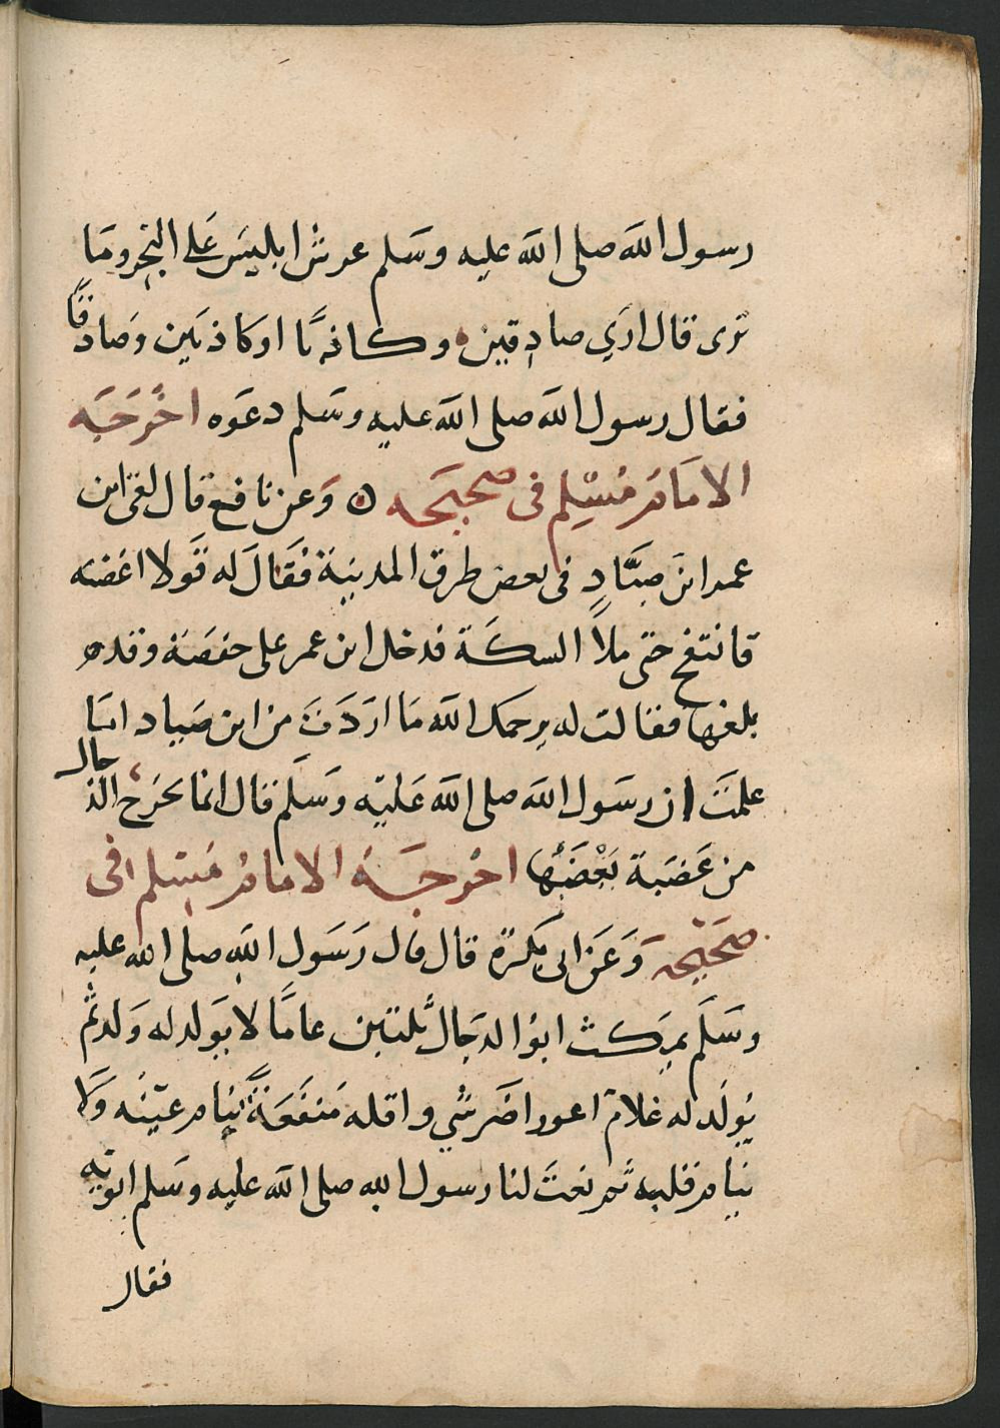 رسول الله صلى الله عليه وسلم عرش ابليس على البحر وما
ترى قال ارى صادقين وكاذبا او كاذبين وصادقا
فقال رسول الله صلى الله عليه وسلم دعوه اخرجه
الامام مسلم في صحيحه ه وعن نافع قال لقى ابن
عمر ابن صياد في بعض طرق المدينة فقال له قولا اغضبه
فانتفخ حتى ملأ السكة فدخل ابن عمر على حفصة وقد
بلغها فقالت له يرحمك الله ما اردت من ابن صياد اما
علمت ان رسول الله صلى الله عليه وسلم قال انما يخرج الدجال
من غضبة يغضبها اخرجه الامام مسلم في
صحيحه وعن ابى بكرة قال قال رسول الله صلى الله عليه
وسلم يمكث ابوا الدجال ثلثين عاما لا يولد له ولد ثم
يولد له غلام اعور اضر شي واقله منفعة تنام عينه ولا
ينام قلبه ثم نعت لنا رسول الله صلى الله عليه وسلم ابويه
فقال